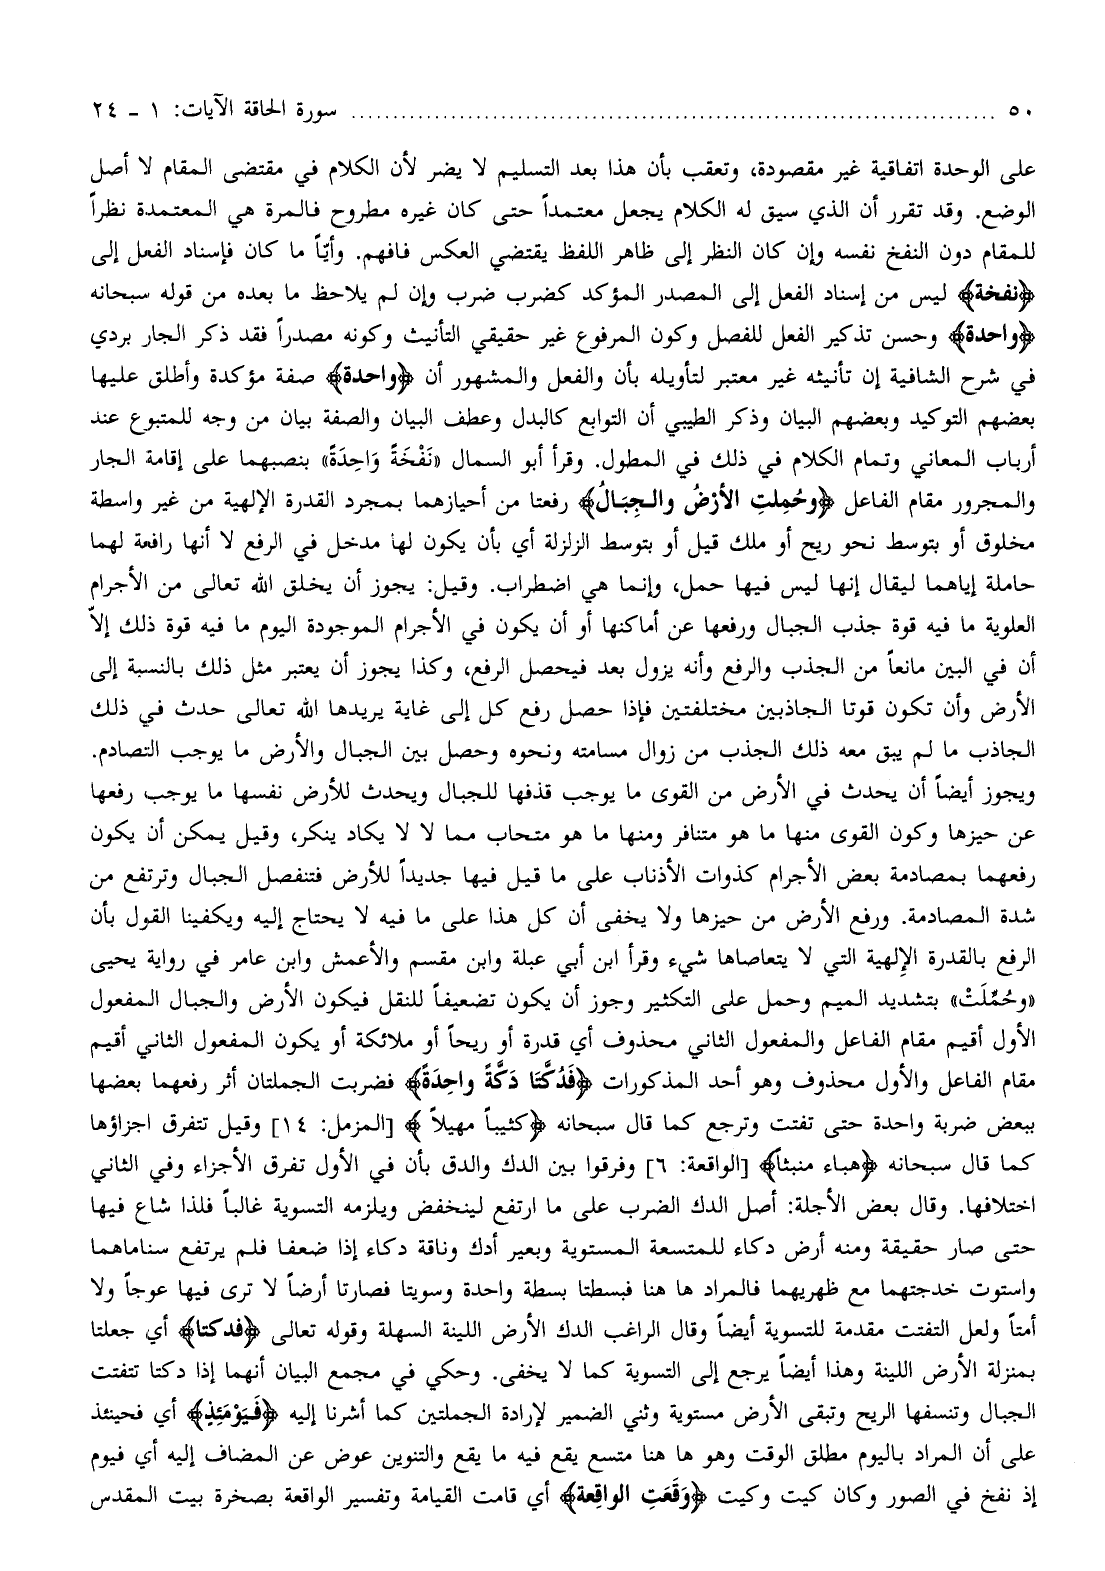 ٥٠ ........................................................................ سورة الحاقة الآيات: ١ ـ ٢٤
على الوحدة اتفاقية غير مقصودة، وتعقب بأن هذا بعد التسليم لا يضر لأن الكلام في مقتضى المقام لا أصل
الوضع. وقد تقرر أن الذي سيق له الكلام يجعل معتمداً حتى كان غيره مطروح فالمرة هي المعتمدة نظراً
للمقام دون النفخ نفسه وإن كان النظر إلى ظاهر اللفظ يقتضي العكس فافهم. وأيّاً ما كان فإسناد الفعل إلى
﴿نفخة﴾ ليس من إسناد الفعل إلى المصدر المؤكد كضرب ضرب وإن لم يلاحظ ما بعده من قوله سبحانه
﴿واحدة﴾ وحسن تذكير الفعل للفصل وكون المرفوع غير حقيقي التأنيث وكونه مصدراً فقد ذكر الجار بردي
في شرح الشافية إن تأنيثه غير معتبر لتأويله بأن والفعل والمشهور أن ﴿واحدة﴾ صفة مؤكدة وأطلق عليها
بعضهم التوكيد وبعضهم البيان وذكر الطيبي أن التوابع كالبدل وعطف البيان والصفة بيان من وجه للمتبوع عند
أرباب المعاني وتمام الكلام في ذلك في المطول. وقرأ أبو السمال «نَفْخَةً وَاحِدَةً» بنصبهما على إقامة الجار
والمجرور مقام الفاعل ﴿وحُمِلتِ الأرْضُ والجِبَالُ﴾ رفعتا من أحيازهما بمجرد القدرة الإلهية من غير واسطة
مخلوق أو بتوسط نحو ريح أو ملك قيل أو بتوسط الزلزلة أي بأن يكون لها مدخل في الرفع لا أنها رافعة لهما
حاملة إياهما ليقال إنها ليس فيها حمل، وإنما هي اضطراب. وقيل: يجوز أن يخلق الله تعالى من الأجرام
العلوية ما فيه قوة جذب الجبال ورفعها عن أماكنها أو أن يكون في الأجرام الموجودة اليوم ما فيه قوة ذلك إلاّ
أن في البين مانعاً من الجذب والرفع وأنه يزول بعد فيحصل الرفع، وكذا يجوز أن يعتبر مثل ذلك بالنسبة إلى
الأرض وأن تكون قوتا الجاذبين مختلفتين فإذا حصل رفع كل إلى غاية يريدها الله تعالى حدث في ذلك
الجاذب ما لم يبق معه ذلك الجذب من زوال مسامته ونحوه وحصل بين الجبال والأرض ما يوجب التصادم.
ويجوز أيضاً أن يحدث في الأرض من القوى ما يوجب قذفها للجبال ويحدث للأرض نفسها ما يوجب رفعها
عن حيزها وكون القوى منها ما هو متنافر ومنها ما هو متحاب مما لا لا يكاد ينكر، وقيل يمكن أن يكون
رفعهما بمصادمة بعض الأجرام كذوات الأذناب على ما قيل فيها جديداً للأرض فتنفصل الجبال وترتفع من
شدة المصادمة. ورفع الأرض من حيزها ولا يخفى أن كل هذا على ما فيه لا يحتاج إليه ويكفينا القول بأن
الرفع بالقدرة الإلهية التي لا يتعاصاها شيء وقرأ ابن أبي عبلة وابن مقسم والأعمش وابن عامر في رواية يحيى
«وحُمِّلَتْ» بتشديد الميم وحمل على التكثير وجوز أن يكون تضعيفاً للنقل فيكون الأرض والجبال المفعول
الأول أقيم مقام الفاعل والمفعول الثاني محذوف أي قدرة أو ريحاً أو ملائكة أو يكون المفعول الثاني أقيم
مقام الفاعل والأول محذوف وهو أحد المذكورات ﴿فَدُكَّتَا دَكَّةً واحِدَةً﴾ فضربت الجملتان أثر رفعهما بعضها
ببعض ضربة واحدة حتى تفتت وترجع كما قال سبحانه ﴿كثيباً مهيلاً﴾ [المزمل: ١٤] وقيل تتفرق اجزاؤها
كما قال سبحانه ﴿هباء منبثاً﴾ [الواقعة: ٦] وفرقوا بين الدك والدق بأن في الأول تفرق الأجزاء وفي الثاني
اختلافها. وقال بعض الأجلة: أصل الدك الضرب على ما ارتفع لينخفض ويلزمه التسوية غالباً فلذا شاع فيها
حتى صار حقيقة ومنه أرض دكاء للمتسعة المستوية وبعير أدك وناقة دكاء إذا ضعفا فلم يرتفع سناماهما
واستوت خدجتهما مع ظهريهما فالمراد ها هنا فبسطتا بسطة واحدة وسويتا فصارتا أرضاً لا ترى فيها عوجاً ولا
أمتاً ولعل التفتت مقدمة للتسوية أيضاً وقال الراغب الدك الأرض اللينة السهلة وقوله تعالى ﴿فدكتا﴾ أي جعلتا
بمنزلة الأرض اللينة وهذا أيضاً يرجع إلى التسوية كما لا يخفى. وحكي في مجمع البيان أنهما إذا دكتا تتفتت
الجبال وتنسفها الريح وتبقى الأرض مستوية وثني الضمير لإرادة الجملتين كما أشرنا إليه ﴿فَيَوْمَئِذٍ﴾ أي فحينئذ
على أن المراد باليوم مطلق الوقت وهو ها هنا متسع يقع فيه ما يقع والتنوين عوض عن المضاف إليه أي فيوم
إذ نفخ في الصور وكان كيت وكيت ﴿وَقَعَتِ الواقِعة﴾ أي قامت القيامة وتفسير الواقعة بصخرة بيت المقدس